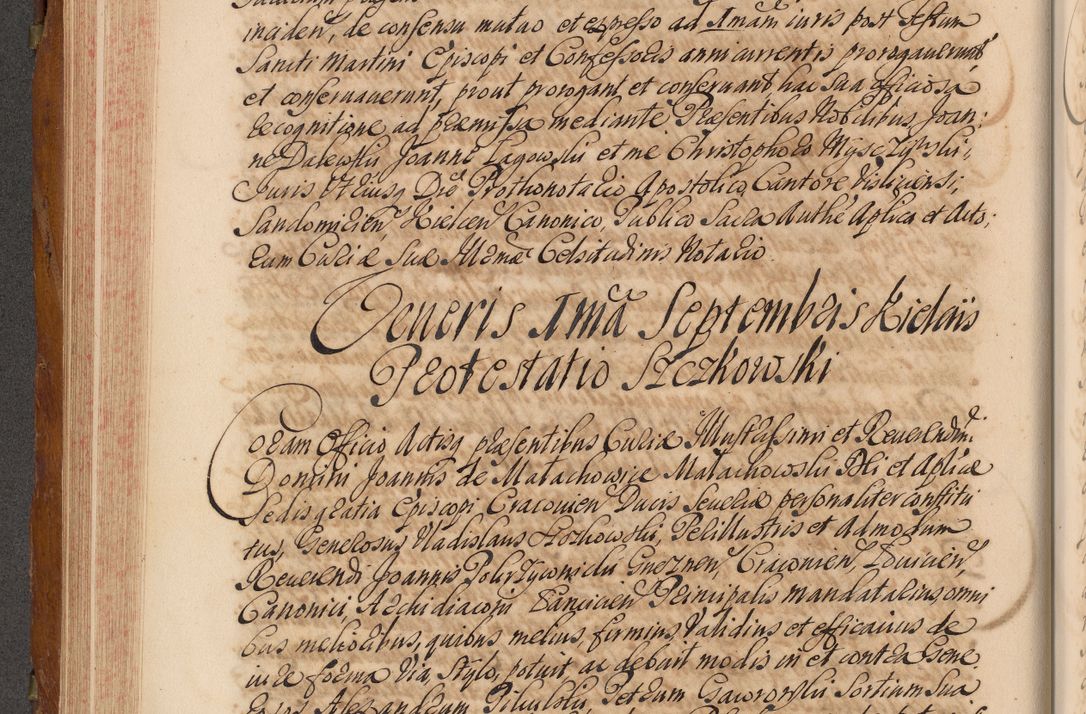 inciden, de consensu mutuo et expresso ad Imam iuris post Festum
Sancti Martini Episcopi et Confessoris anni currentis prorogaverunt
et conservaverunt, prout prorogant et conservant hac sua officiosa
recognitione ad praemissa mediante Praesentibus Nobilibus Joan:
ne Dalewski Joanne Łagowski et me Christophoro
Juris Utriusq Dre Prothonotario Apostolico Cantore Visliciensi,
Sandomirien, Kielcen Canonico, Publico Sacra Authe Aplica et Acto:
rum Curiae Suae Illmae Celsitudinis Notario
Veneris Ima Septembris Kielciis
Protestatio Szczkowski
Coram Officio Actisq praesentibus Curiae Illustrissimi et Reverendmi
Domini Joannis de Małachowice Małachowski Dei et Aplicae
Sedis gratia Episcopi Cracovien Ducis Severiae personaliter constitu
tus, Generosus Vladislaus Perillustris et Admodum
Reverendi Joannis Gneznen, Cracovien,
Canonici, Archidiaconi Principalis mandatarius, omni
bus melioribus, quibus melius, firmius, Validius et efficacius de
iure forma Via, Stylo, potuit ac debuit modis in et contra Gene
rosos Alexandrum Petrum Gaworoski Sortium Sua